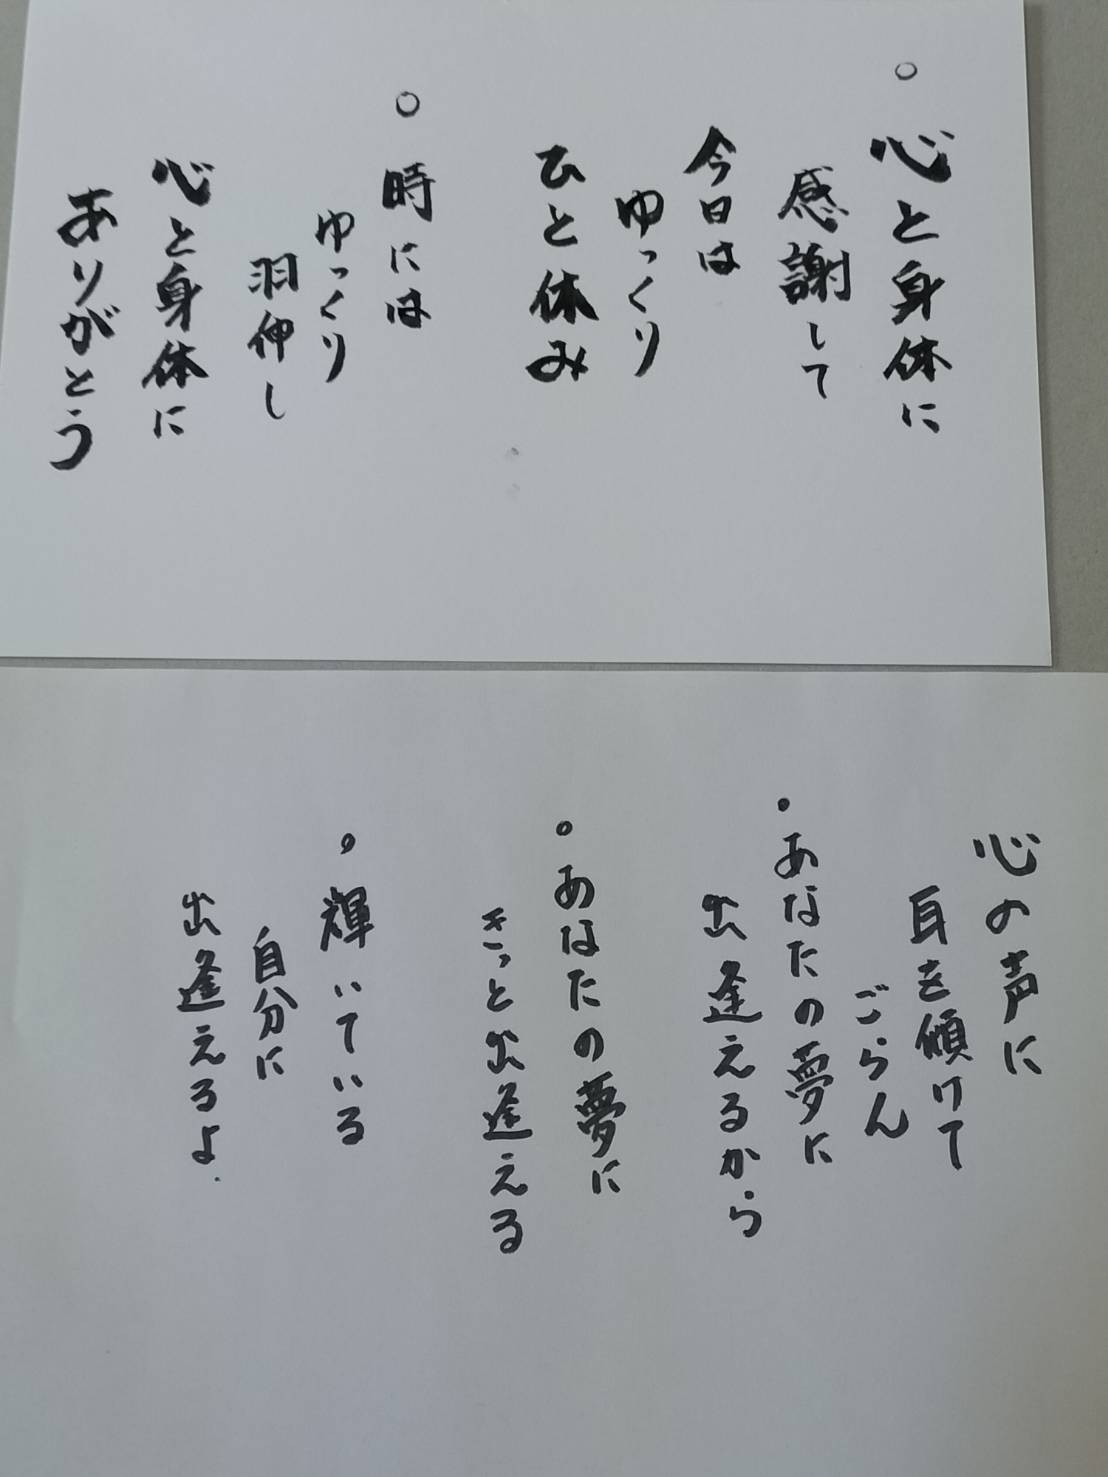 ○ 心と身体に
感謝して
今日は
ゆっくり
ひと休み
○ 時には
ゆっくり
羽伸し
心と身体に
ありがとう
心の声に
耳を傾けて
ごらん
・あなたの夢に
出逢えるから
・あなたの夢に
きっと出逢える
・輝いている
自分に
出逢えるよ.